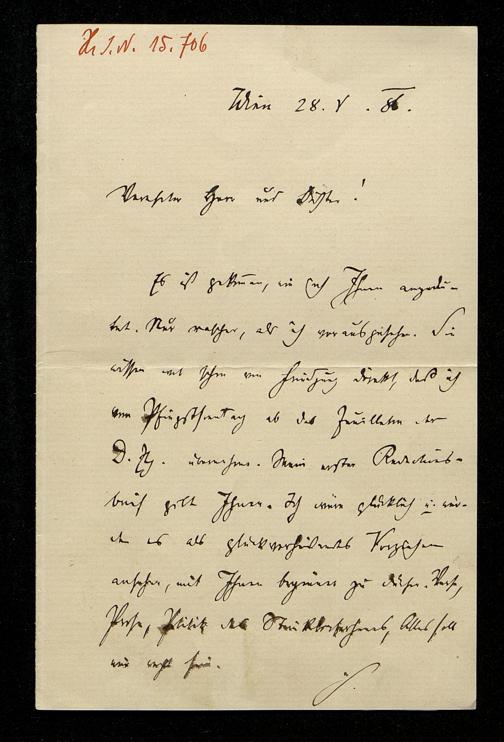 H.I.N. 15.706
Wien 28. V. 86.
Verehrter Herr und Dichter!
Es ist gekommen, wie ich Ihnen angedeu-
tet. Nur rascher, als ich vorausgesehen. Sie
wissen wol schon von direkt, daß ich
vom Pfingstsonntag ab das Feuilleton der
D. Ztg. übernehme. Mein erster Redactions-
brief gilt Ihnen. Ich wäre glücklich u. wür-
de es als glückverheißendes Vorzeichen
ansehen, mit Ihnen beginnen zu dürfen. Verse,
Prosa, Politik des Alles soll
mir recht sein.